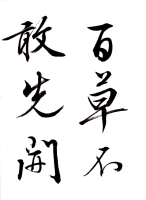 百草不
敢先開